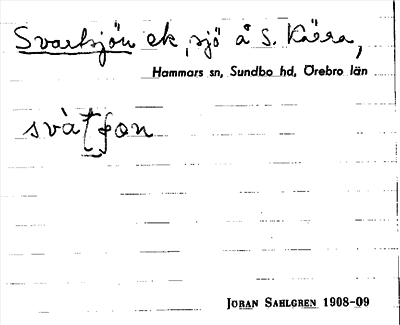 Svartsjön ek, sjö å S. Kärra,
Hammars sn, Sundbo hd, Örebro län
JÖRAN SAHLGREN 1908-09